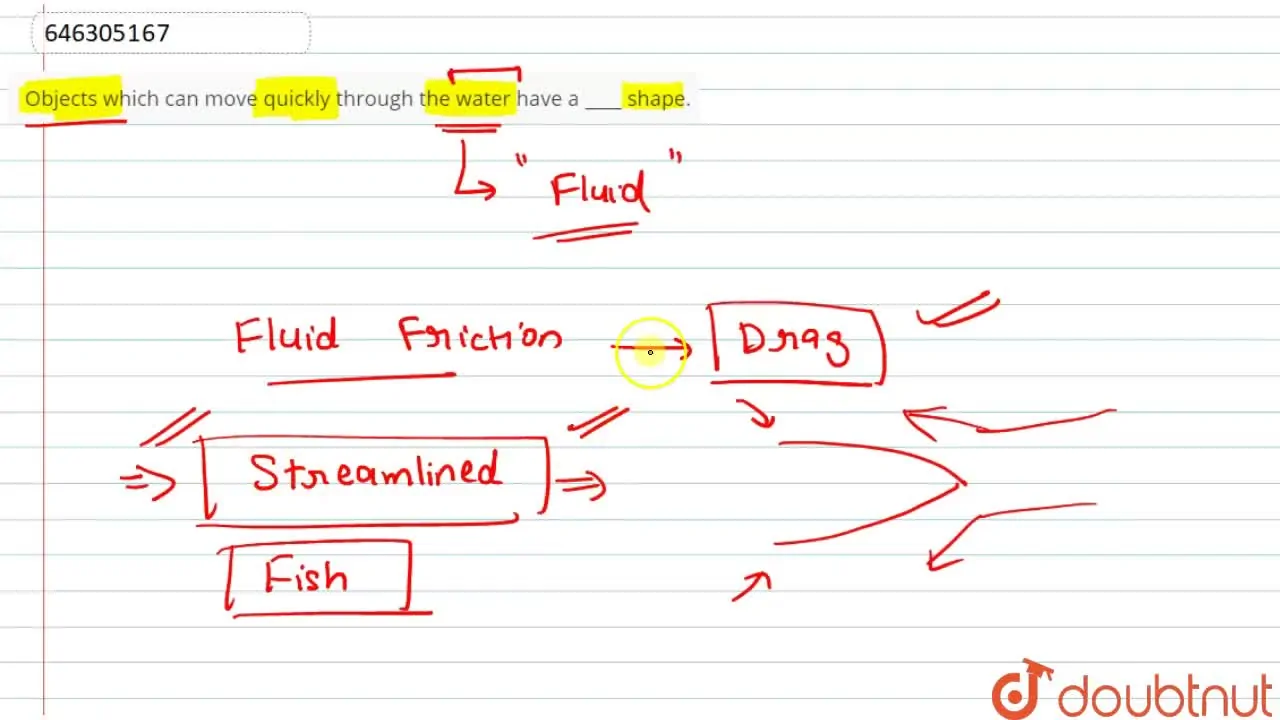 646305167
Objects which can move quickly through the water have a ____ shape.
"Fluid"
Fluid Friction → Drag
⇒ Streamlined ⇒
Fish
doubtnut